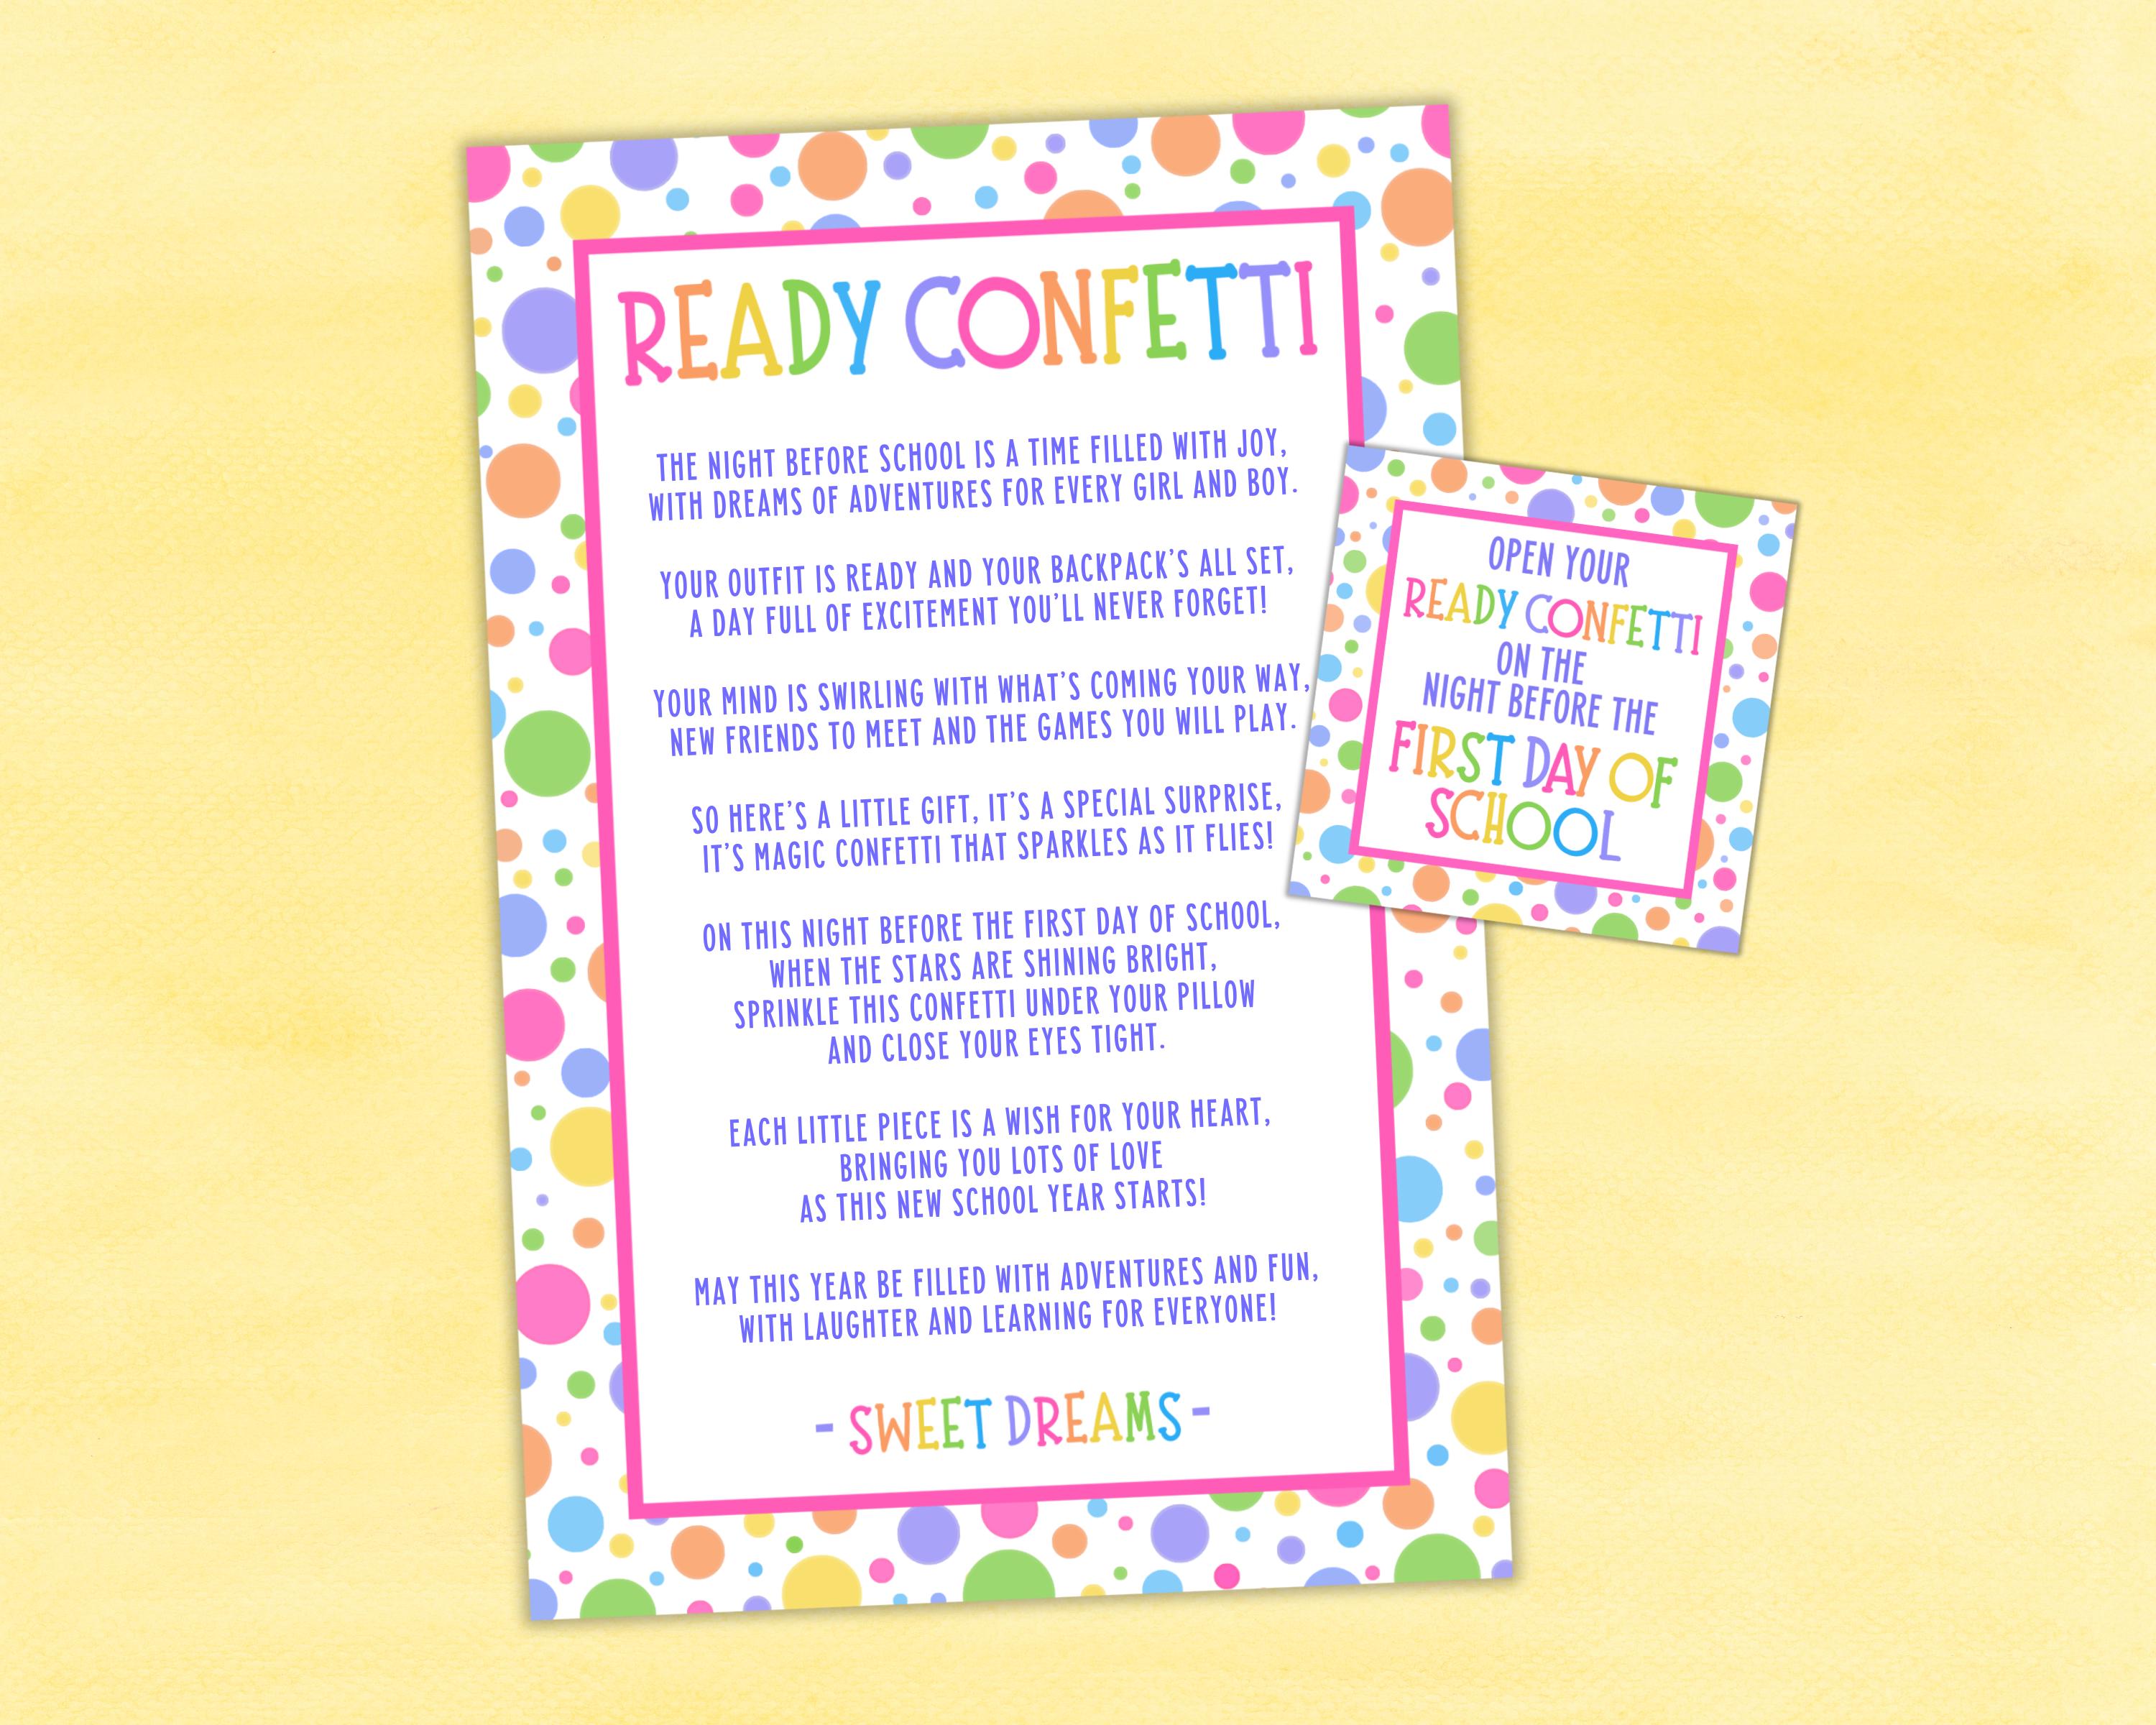 READY CONFETTI
THE NIGHT BEFORE SCHOOL IS A TIME FILLED WITH JOY,
WITH DREAMS OF ADVENTURES FOR EVERY GIRL AND BOY.
YOUR OUTFIT IS READY AND YOUR BACKPACK'S ALL SET,
A DAY FULL OF EXCITEMENT YOU'LL NEVER FORGET!
YOUR MIND IS SWIRLING WITH WHAT'S COMING YOUR WAY,
NEW FRIENDS TO MEET AND THE GAMES YOU WILL PLAY.
SO HERE'S A LITTLE GIFT, IT'S A SPECIAL SURPRISE,
IT'S MAGIC CONFETTI THAT SPARKLES AS IT FLIES!
ON THIS NIGHT BEFORE THE FIRST DAY OF SCHOOL,
WHEN THE STARS ARE SHINING BRIGHT,
SPRINKLE THIS CONFETTI UNDER YOUR PILLOW
AND CLOSE YOUR EYES TIGHT.
EACH LITTLE PIECE IS A WISH FOR YOUR HEART,
BRINGING YOU LOTS OF LOVE
AS THIS NEW SCHOOL YEAR STARTS!
MAY THIS YEAR BE FILLED WITH ADVENTURES AND FUN,
WITH LAUGHTER AND LEARNING FOR EVERYONE!
- SWEET DREAMS -
OPEN YOUR
READY CONFETTI
ON THE
NIGHT BEFORE THE
FIRST DAY OF
SCHOOL